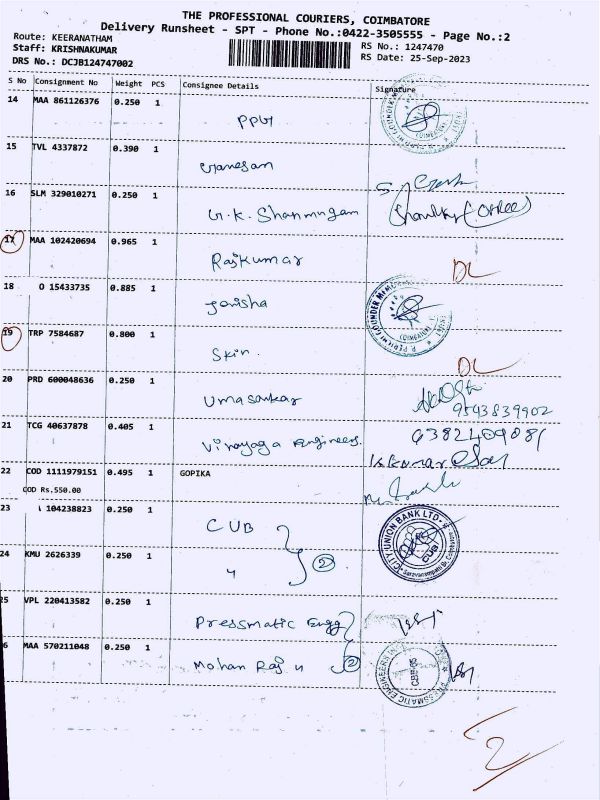 THE PROFESSIONAL COURIERS, COIMBATORE
Delivery Runsheet - SPT - Phone No.:0422-3505555 - Page No.:2
Route: KEERANATHAM
RS No.: 1247470
Staff: KRISHNAKUMAR
RS Date: 25-Sep-2023
DRS No.: DCJB124747002
S No Consignment No Weight PCS Consignee Details Signature
14 MAA 861126376 0.250 1
PPG
15 TVL 4337872 0.390 1
Ganesan
16 SLM 329010271 0.250 1
G.K. Shanmugam
17 MAA 102420694 0.965 1
Rajkumar DL
18 O 15433735 0.885 1
Janisha
19 TRP 7584687 0.800 1
Skin. DL
20 PRD 600048636 0.250 1
Umasankar 9543839902
21 TCG 40637878 0.405 1 6382409081
Vinayaga Engineers.
22 COD 1111979151 0.495 1 GOPIKA
COD Rs.550.00
23 104238823 0.250 1
CUB
CITY UNION BANK LTD
CUB
24 KMU 2626339 0.250 1
" 2
25 VPL 220413582 0.250 1
Pressmatic Engg
6 MAA 570211048 0.250 1
Mohan Raj 2
PRESSMATIC ENGINEERING
CBE-35
2